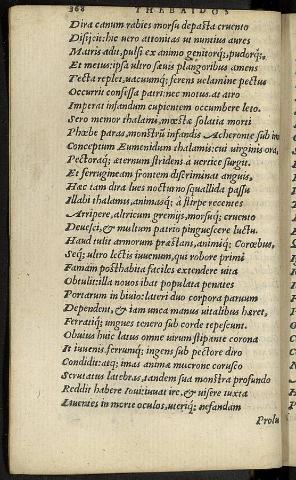 368 THEBAIDOS
Dira canum rabies morsu depasta cruento
Disijcit: hic uero attonitas ut nuntius aures
Matris adit, pulsi ex animo genitorq;, pudorq;,
Et metus: ipsa ultro sæuis plangoribus amens
Tecta replet, uacuumq; ferens uelamine pectus
Occurrit confessa patri: nec motus. at atro
Imperat infandum cupientem occumbere leto.
Sero memor thalami, mœstæ solatia morti
Phœbe paras, monstrũ infandis Acheronte sub imo
Conceptum Eumenidum thalamis: cui uirginis ora,
Pectoraq;, æternum stridens à uertice surgit,
Et ferrugineam frontem discriminat anguis.
Hæc tam dira lues nocturno squallida passu
Illabi thalamis, animasq; à stirpe recentes
Arripere, altricum gremijs, morsuq; cruento
Deuesci, & multum patrio pinguescere luctu.
Haud tulit armorum præstans, animiq; Corœbus,
Seq; ultro lectis iuuenum, qui robore primi
Famam posthabita faciles extendere uita
Obtulit: illa nouos ibat populata penates
Portarum in biuio: lateri duo corpora paruum
Dependent, & iam unca manus uitalibus hæret,
Ferratiq; ungues tenero sub corde tepescunt.
Obuius huic latus omne uirum stipante corona
It iuuenis, ferrumq; ingens sub pectore diro
Condidit: atq; imas animæ mucrone corusco
Scrutatus latebras, tandem sua monstra profundo
Reddit habere Ioui: iuuat ire, & uisere iuxta
Liuentes in morte oculos, uteriq; nefandam
Prolu